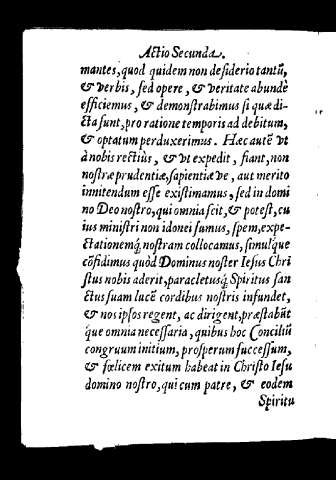 Actio Secunda.
mantes, quod quidem non desiderio tantũ,
& verbis, sed opere, & veritate abundè
efficiemus, & demonstrabimus si quæ di-
cta sunt, pro ratione temporis ad debitum,
& optatum perduxerimus. Hæc autẽ vt
à nobis rectius, & vt expedit, fiant, non
nostræ prudentiæ, sapientiæ ve, aut merito
innitendum esse existimamus, sed in domi
no Deo nostro, qui omnia scit, & potest, cu
ius ministri non idonei sumus, spem, expe-
ctationemq́ nostram collocamus, simulque
cõfidimus quòd Dominus noster Iesus Chri
stus nobis aderit, paracletusq́ Spiritus san
ctus suam lucẽ cordibus nostris infundet,
& nos ipsos regent, ac dirigent, præstabũt
q́ue omnia necessaria, quibus hoc Conciliũ
congruum initium, prosperum successum,
& fœlicem exitum habeat in Christo Iesu
domino nostro, qui cum patre, & eodem
Spiritu